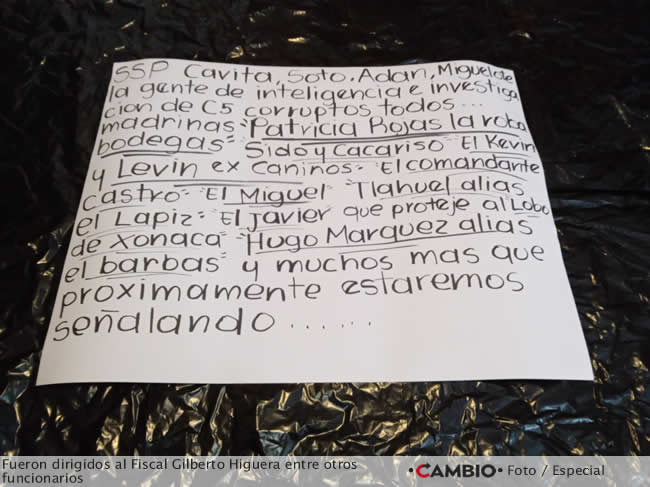 SSP Cavita, Soto, Adan, Miguel de
la gente de inteligencia e investiga
cion de C5 corruptos todos...
madrinas "Patricia Rojas la roba
bodegas" Sido y Cacariso" El Kevin
y Levin ex Caninos" El comandante
castro" El Miguel" Tlahuel alias
el Lapiz" El Javier que proteje al Lobo
de Xonaca" Hugo Marquez alias
el barbas" y muchos mas que
proximamente estaremos
señalando ......
Fueron dirigidos al Fiscal Gilberto Higuera entre otros
funcionarios
•CAMBIO• Foto / Especial